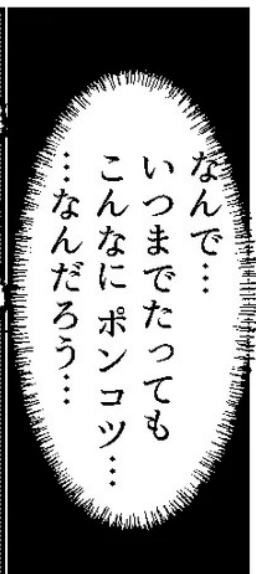 なんで…
いつまでたっても
こんなに ポンコツ…
…なんだろう…